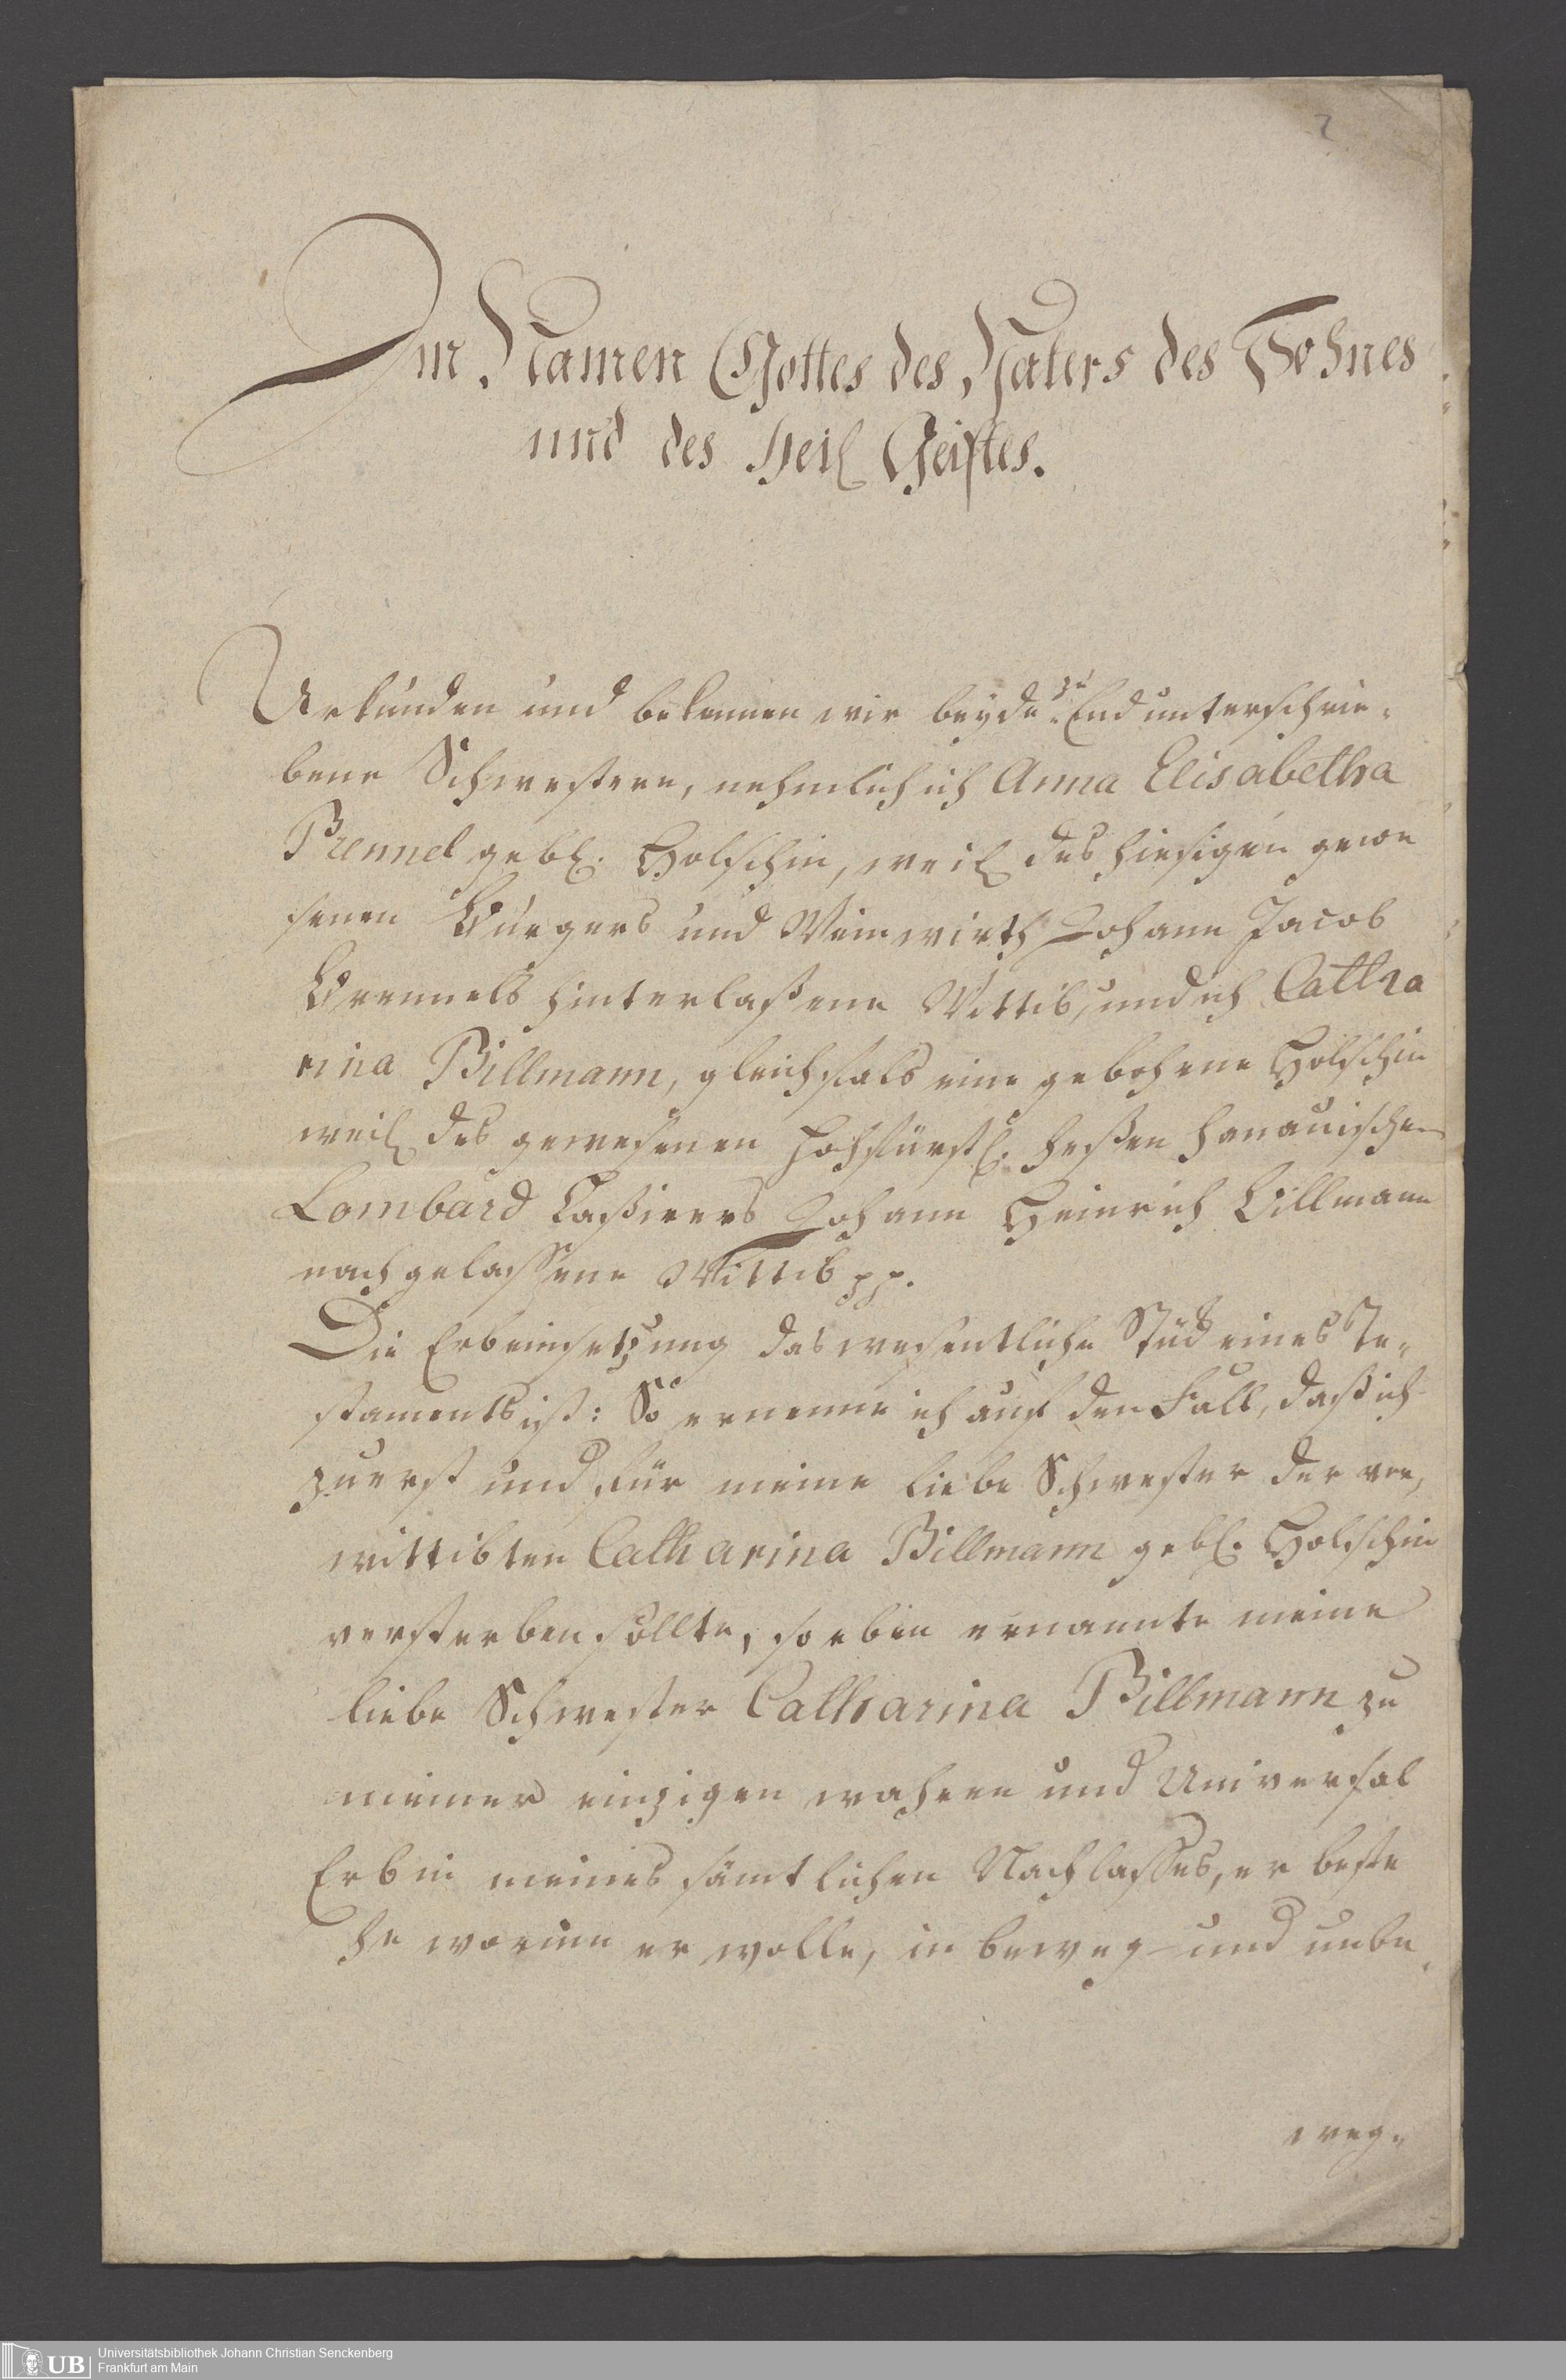 2
Im Namen Gottes des Vaters des Sohnes
und des Heil Geistes.
Urkunden und bekennen wir beyde zu End unterschrie-
bene Schwestern, nehmlich ich Anna Elisabetha
Brennel gebl. Holschin, weil des hiesigen gewe
senen Burgers und Weinwirth Johann Jacob
Brennels hinterlaßene Wittib, und ich Catha
rina Billmann, gleichfals eine gebohrene Holschin
weil des gewesenen Hochfürstl. Heßen Hanauischen
Lombard Caßirers Johann Heinrich Billmann
nachgelassene Wittib pp.
Die Erbeinsetzung das wesentliche Stück eines Te-
staments ist: So ernenne ich auf den Fall, daß ich
zuerst und für meine liebe Schwester der ver,
wittibten Catharina Billmann gebl. Holschin
versterben sollte, so eben ernannte meine
liebe Schwester Catharina Billmann zu
meiner einzigen wahren und Universal
Erbin meines sämtlichen Nachlasses, er beste
he worinn er wolle, in beweg- und unbe-
weg-
UB
Universitätsbibliothek Johann Christian Senckenberg
Frankfurt am Main